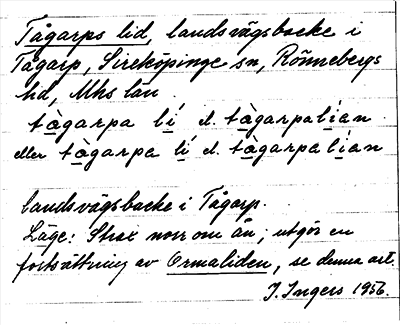 Tågarps lid, landsvägsbacke i
Tågarp, Sireköpinge sn, Rönnebergs
hd, Mhs län
tàgarpa lí el. tàgarpalían
eller tàgarpa lí el. tàgarpa lían
landsvägsbacke i Tågarp.
Läge: Strax norr om ån; utgör en
fortsättning av Ormaliden, se denna art.
J. Ingers 1956.